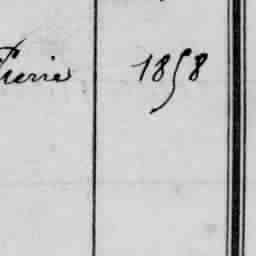 Pierre 1858